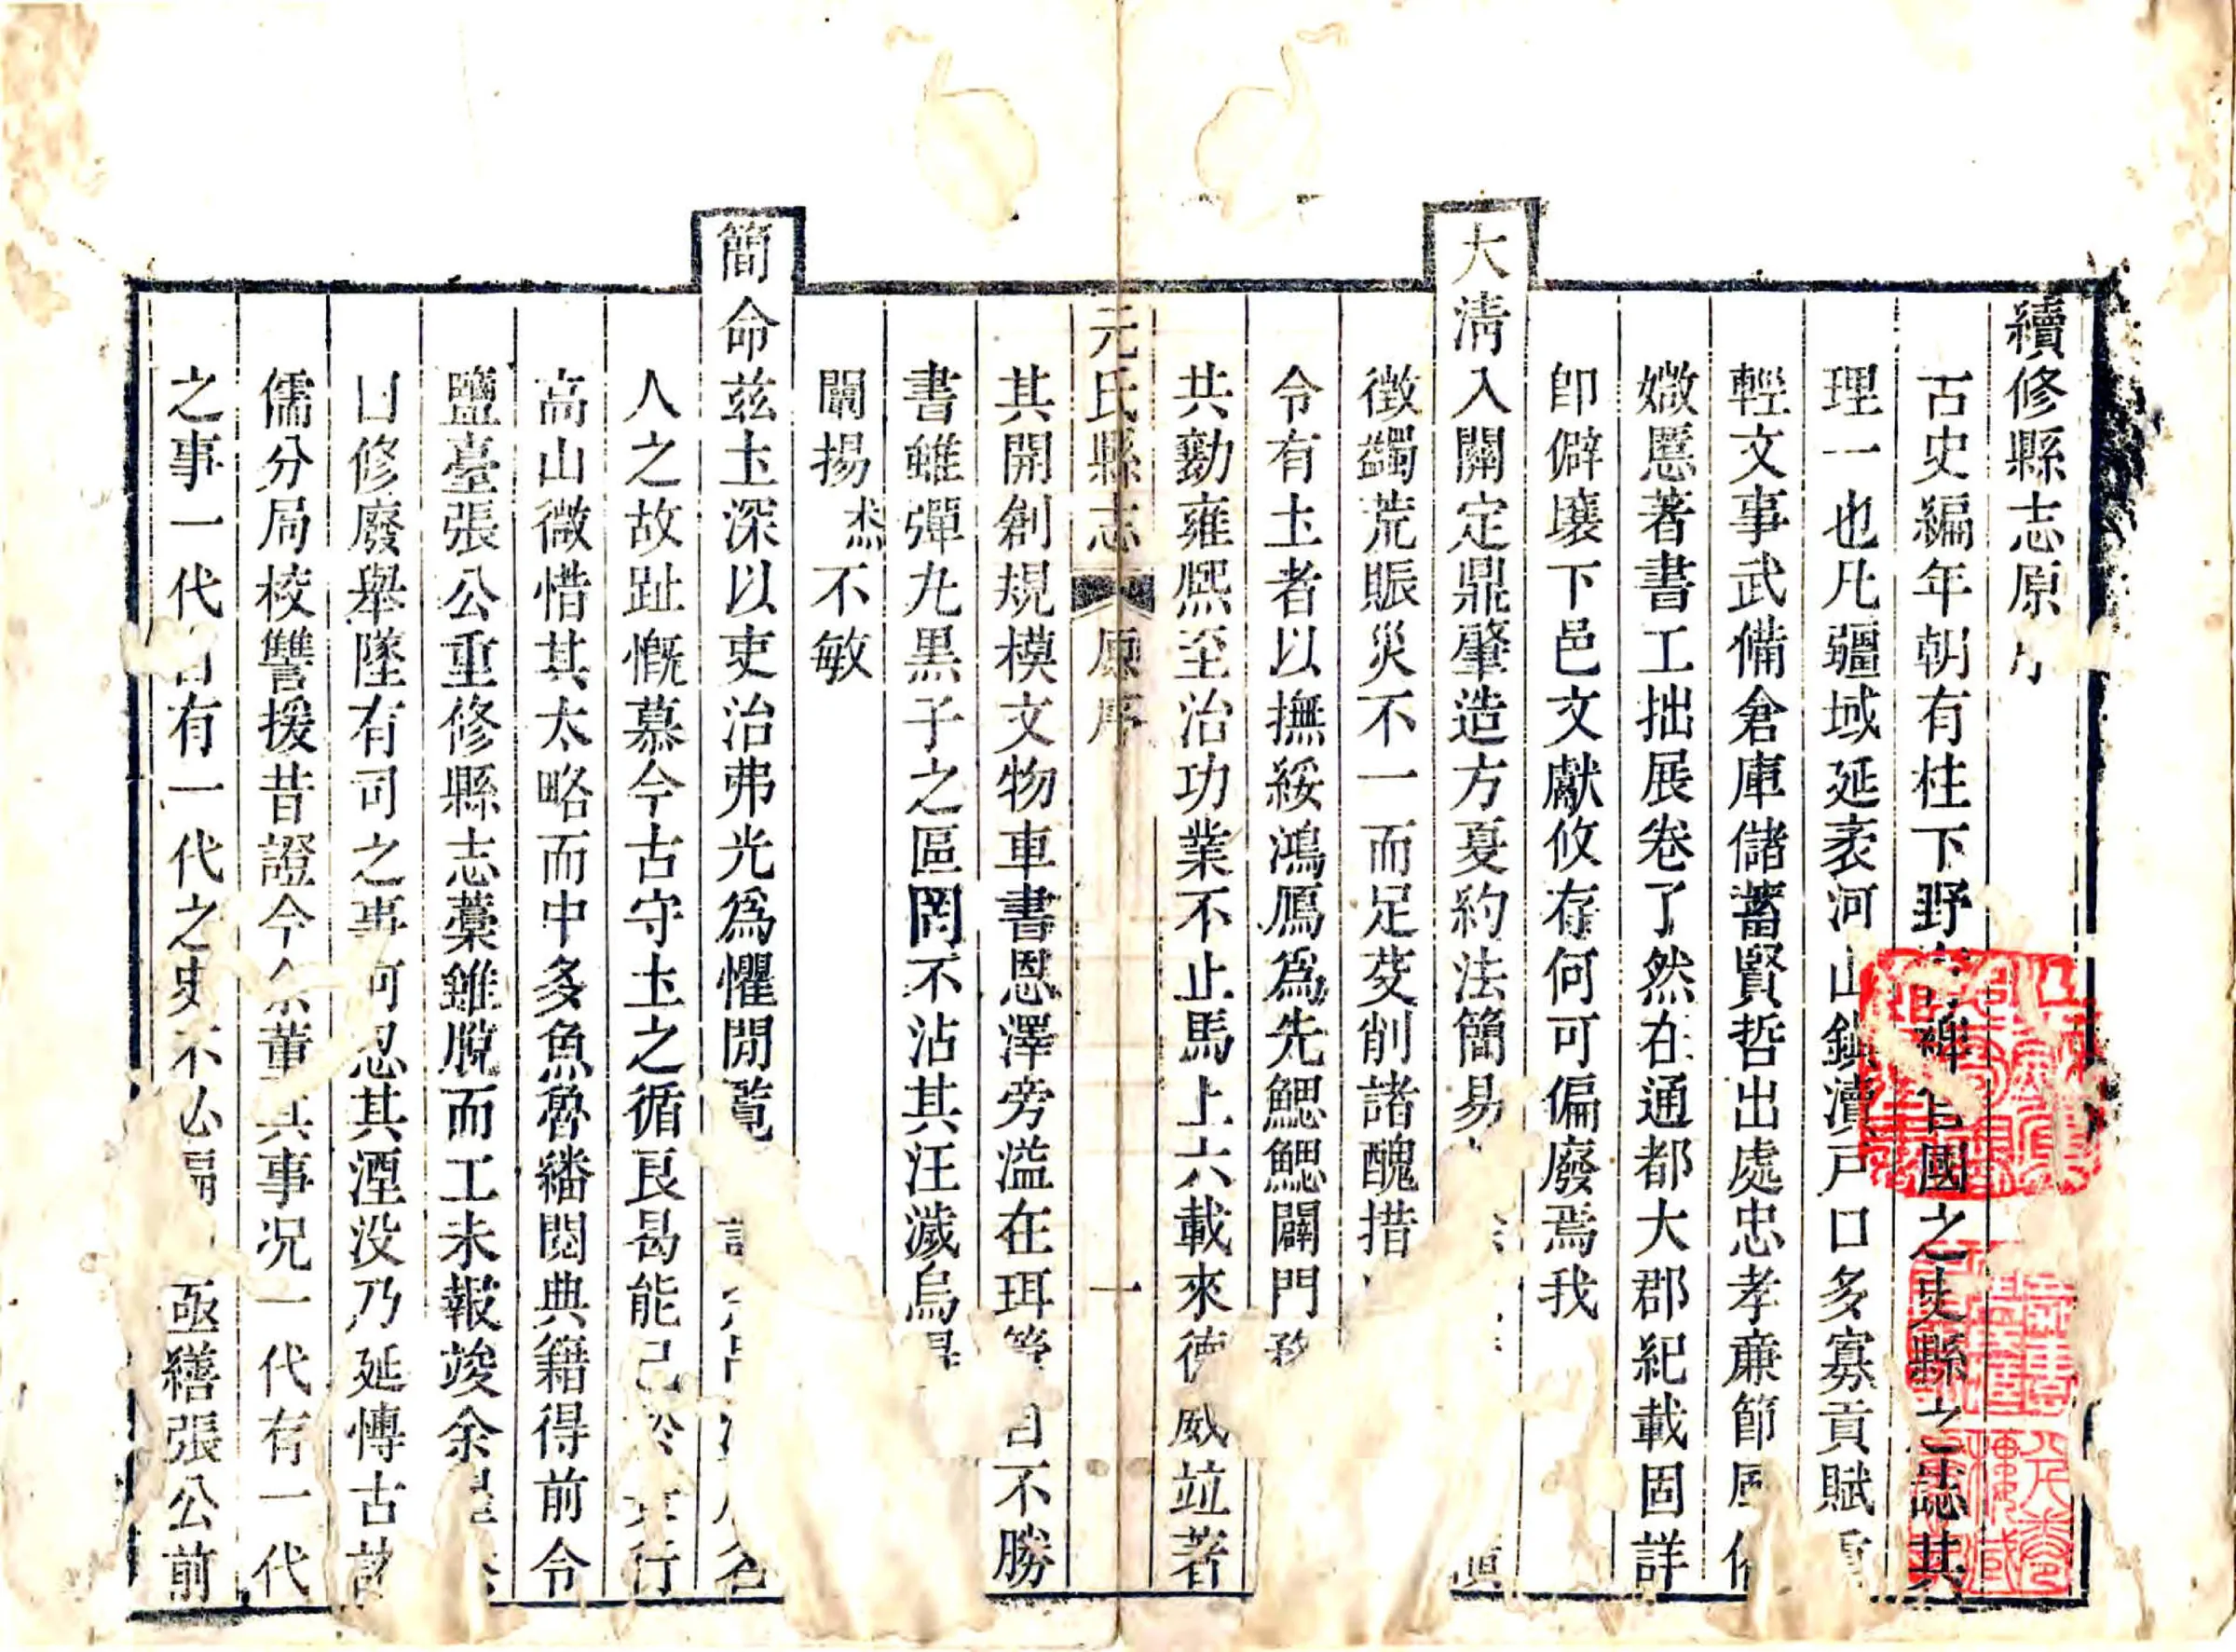 續修縣志原
古史編年朝有柱下野 稗官國之史縣之誌其
理一也凡疆域延袤河山鎮瀆戶口多寡貢賦重
輕文事武備倉庫儲蓄賢哲出處忠孝廉節風
媺慝著書工拙展卷了然在通都大郡紀載固詳
卽僻壤下邑文獻攸存何可偏廢焉我
大淸入關定鼎肇造方夏約法簡易
徵蠲荒賑災不一而足芟削諸醜措
令有土者以撫綏鴻鴈爲先鰓鰓闢門
共勷雍熙至治功業不止馬上六載來德威竝著
元氏縣志 原序 一
其開創規模文物車書恩澤旁溢在珥 不勝
書雖彈丸黑子之區罔不沾其汪濊烏
闡揚 不敏
簡命兹土深以吏治弗光爲懼閒覽
人之故趾慨慕今古守土之循良曷能已於 行
高山微惜其太略而中多魚魯繙閱典籍得前令
鹽臺張公重修縣志藁雖脫而工未報竣余
曰修廢舉墜有司之事何忍其湮没乃延愽古
儒分局校讐援昔證今 董其事况一代有一代
之事一代 有一代之史不必 亟繕張公前